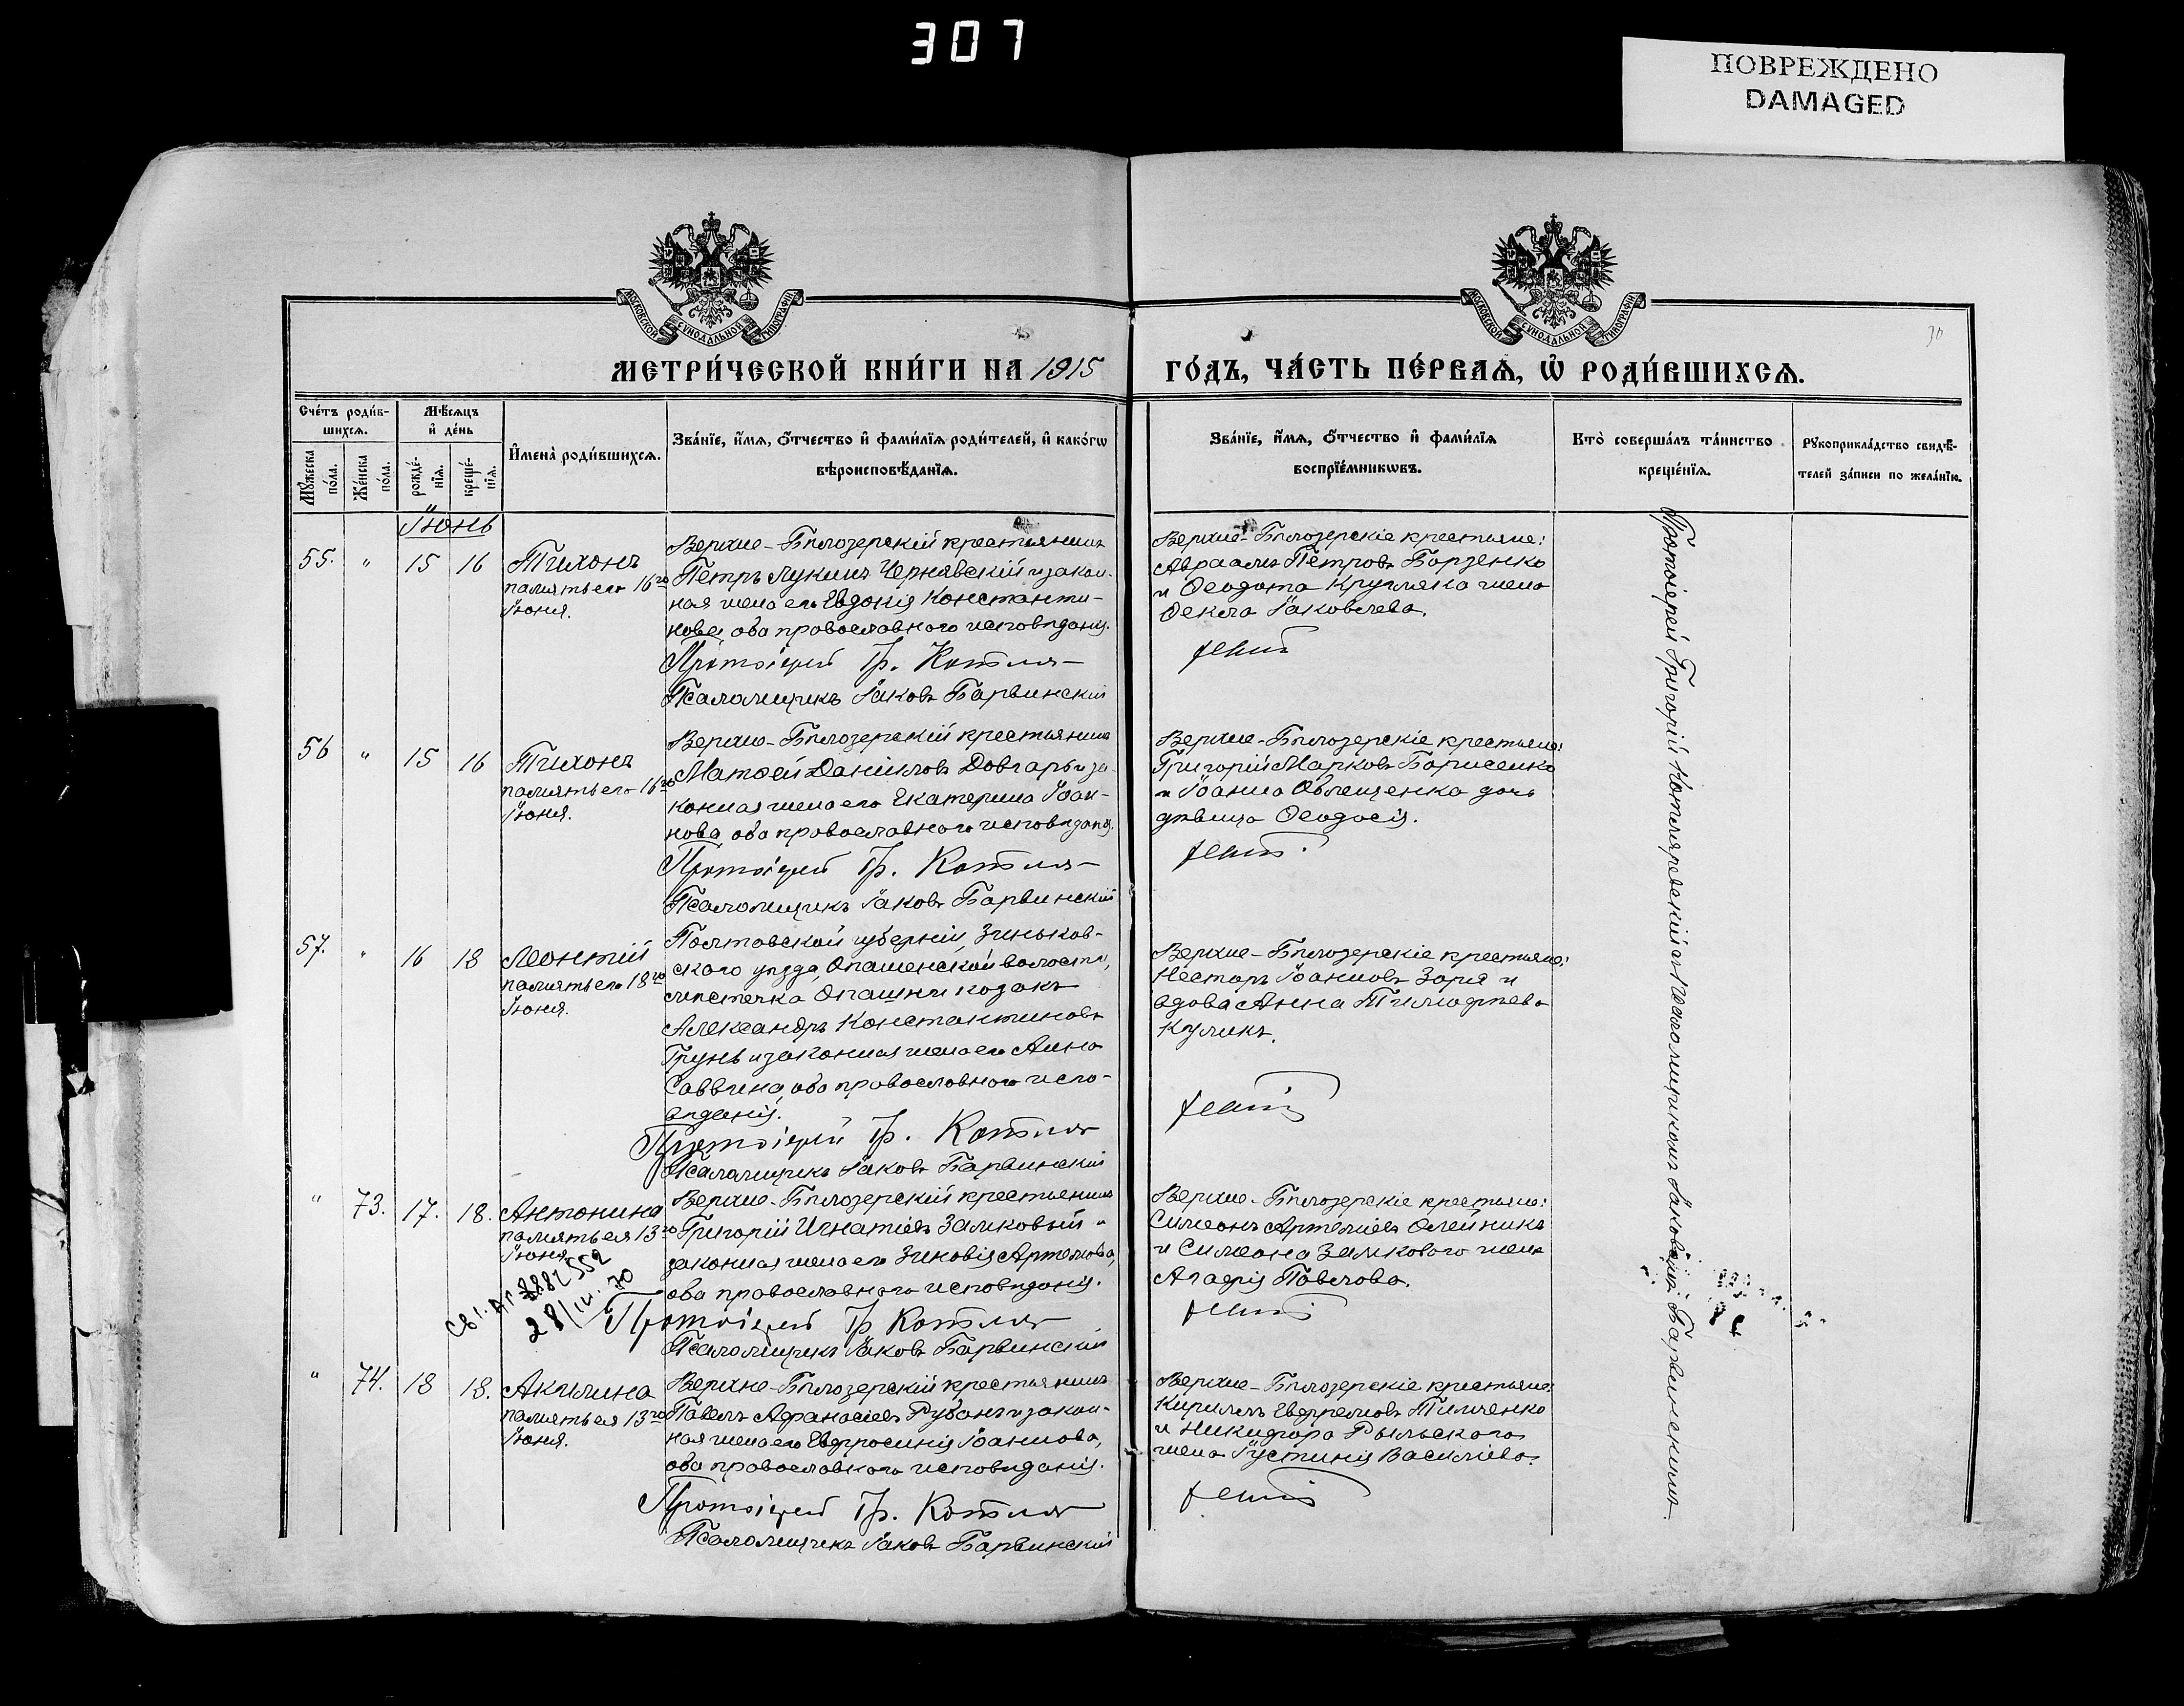 307
ПОВРЕЖДЕНО
DAMAGED
МОСКОВСКОЙ СУНОДАЛЬНОЙ ТИПОГРАФІИ
МОСКОВСКОЙ СУНОДАЛЬНОЙ ТИПОГРАФІИ
МЕТРИ́ЧЕСКОЙ КНИ́ГИ НА 1915
ГО́ДЪ, ЧА́СТЬ ПЕ́РВАѦ, Ѡ РОДИ́ВШИХСѦ.
Сче́тъ роди́в-
шихсѧ.
Мꙋжеска по́ла.
Же́нска по́ла.
Мѣ́сѧцъ
и де́нь
рожде́-
нїѧ.
креще́-
нїѧ.
Имена̀ роди́вшихсѧ.
Зва́нїе, и́мѧ, о́тчество и фами́лїѧ роди́телей, и како́гѡ
вѣроисповѣ́данїѧ.
Зва́нїе, и́мѧ, о́тчество и фами́лїѧ
воспрїе́мникѡвъ.
Кто̀ соверша́лъ та́инство
креще́нїѧ.
Рꙋкоприкла́дство свидѣ́-
телей за́писи по жела́нїю.
Іюнь
55. " 15 16 Тихонъ
память его 16го
Іюня.
Верхне-Бѣлозерскій крестьянинъ
Петръ Лукинъ Чернявскій и закон-
ная жена его Евдокія Константи-
нова, оба православнаго исповѣданія.
Протоіерей Гр. Котля
Псаломщикъ Іаковъ Барвинскій
Верхне-Бѣлозерскіе крестьяне:
Авраамъ Петровъ Борзенко
и Ѳеодота Кругляка жена
Ѳекла Іаковлева.
56 " 15 16 Тихонъ
память его 16го
Іюня.
Верхне-Бѣлозерскій крестьянинъ
Матѳей Даніиловъ Довгаръ и за-
конная жена его Екатерина Іоан-
нова, оба православнаго исповѣданія.
Протоіерей Гр. Котля
Псаломщикъ Іаковъ Барвинскій
Верхне-Бѣлозерскіе крестьяне:
Григорій Марковъ Борисенко
и Іоанна Облещенка дочь
дѣвица Ѳеодосія.
57. " 16 18 Леонтій
память его 18го
Іюня.
Полтавской губерніи, Зиньков-
скаго уѣзда, Опашенской волости,
мѣстечка Опашни козакъ
Александръ Константиновъ
Грунь и законная жена его Анна
Саввина, оба православнаго испо-
вѣданія.
Протоіерей Гр. Котля
Псаломщикъ Іаковъ Барвинскій
Верхне-Бѣлозерскіе крестьяне:
Несторъ Іоанновъ Зоря и
вдова Анна Тимоѳеева
Куликъ.
" 73. 17. 18. Антонина
память ея 13го
Іюня.
28/IV.70
Верхне-Бѣлозерскій крестьянинъ
Григорій Игнатіевъ Замковый и
законная жена его Зиновія Артемова,
оба православнаго исповѣданія.
Протоіерей Гр Котля
Псаломщикъ Іаковъ Барвинскій
Верхне-Бѣлозерскіе крестьяне:
Симеонъ Артеміевъ Олейникъ
и Симеона Замкового жена
Агафія Павлова.
" 74. 18 18. Акилина
память ея 13го
Іюня.
Верхне-Бѣлозерскій крестьянинъ
Павелъ Афанасіевъ Рубанъ и закон-
ная жена его Евфросинія Іоаннова,
оба православнаго исповѣданія.
Протоіерей Гр. Котля
Псаломщикъ Іаковъ Барвинскій
Верхне-Бѣлозерскіе крестьяне:
Кириллъ Евфремовъ Тимченко
и Никифора Рыльскаго
жена Іустинія Василіева.
Протоіерей Григорій Котляревскій съ псаломщикомъ Іаковомъ Барвинскимъ.